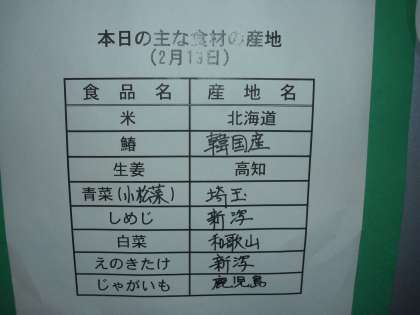 本日の主な食材の産地
(2月13日)
食品名 産地名
米 北海道
鰆 韓国産
生姜 高知
青菜(小松菜) 埼玉
しめじ 新潟
白菜 和歌山
えのきたけ 新潟
じゃがいも 鹿児島